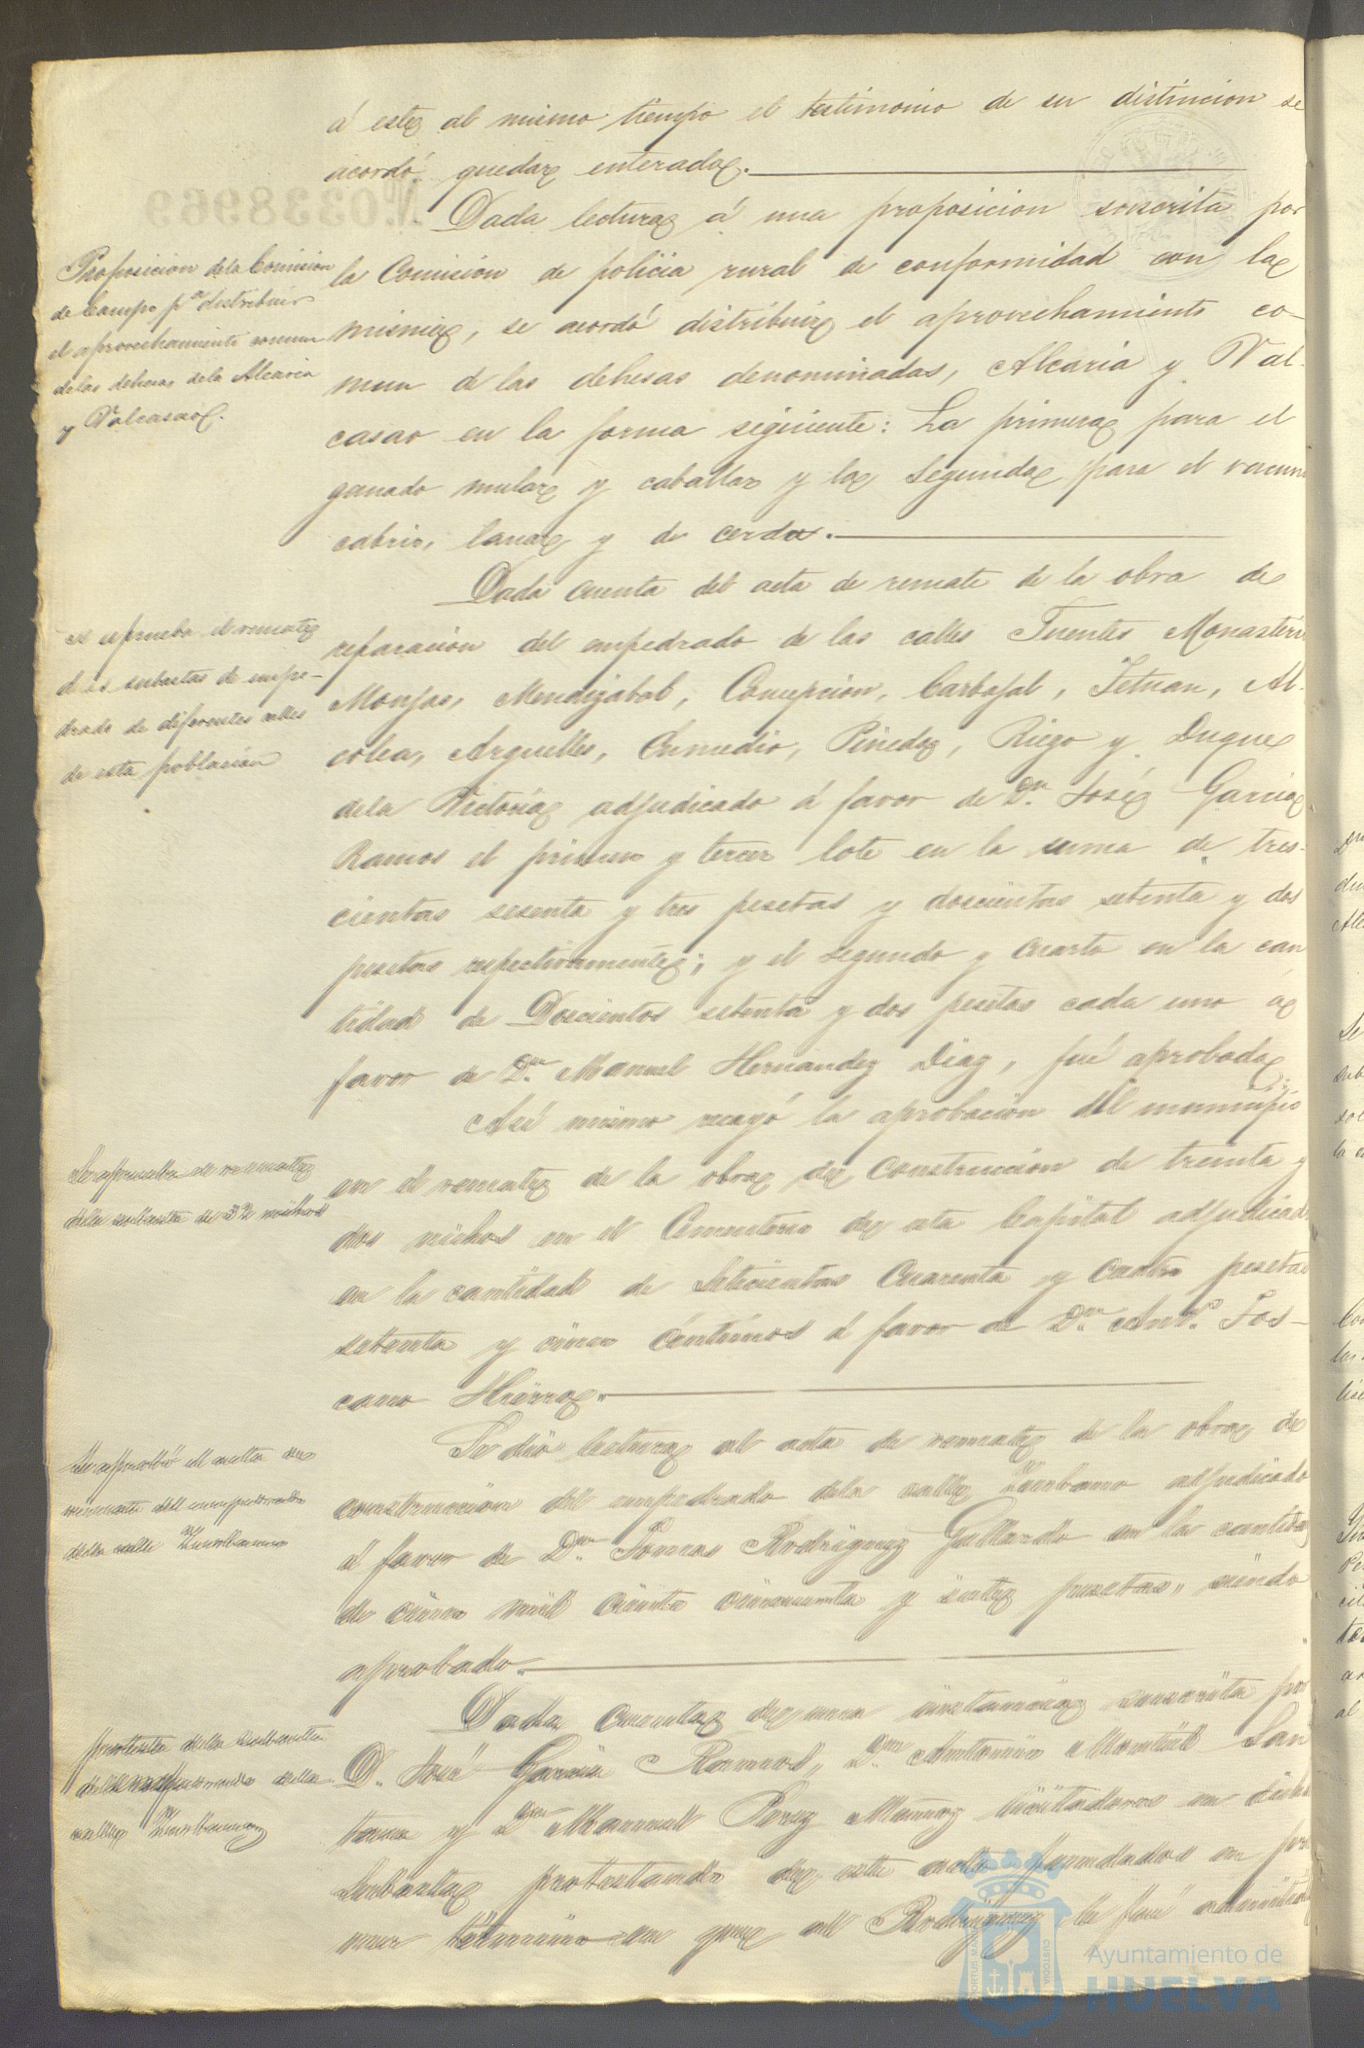 á este al mismo tiempo el testimonio de su distincion se
acordó quedar enterada.
Dada lectura á una proposicion suscrita por
Proposicion de la Comision
de Campo pª distribuir
el aprovechamiento comun
de las dehesas de la Alcaria
y Valcasao.
la Comisión de policia rural de conformidad con la
misma, se acordó distribuir el aprovechamiento co-
mun de las dehesas denominadas, Alcaria y Val-
casao en la forma siguiente: La primera para el
ganado mular y caballar y la segunda para el vacuno
cabrio, lanar y de cerda.
Dada cuenta del acta de remate de la obra de
Se aprueba el remate
de las subastas de empe-
drado de diferentes calles
de esta poblacion
reparacion del empedrado de las calles Fuentes Monasterio
Monjas, Mendizabal, Concepcion, Carbajal, Tetuan, Al-
colea, Arguelles, Enmedio, Pineda, Riego y Duque
de la Victoria adjudicado á favor de Dn. José Garcia
Ramos el primer y tercer lote en la suma de tres-
cientas sesenta y tres pesetas y doscientas setenta y dos
pesetas respectivamente; y el segundo y cuarto en la can
tidad de Doscientos setenta y dos pesetas cada uno á
favor de Dn. Manuel Hernandez Diaz, fué aprobada.
Asi mismo recayó la aprobacion del municipio
Se aprueba el remate
de la subasta de 32 nichos
en el remate de la obra de construccion de treinta y
dos nichos en el Cementerio de esta Capital adjudicado
en la cantidad de Setecientas cuarenta y cuatro pesetas
setenta y cinco céntimos á favor de Dn. Antº. Tos-
cano Hierro.
Se dió lectura al acta de remate de la obra de
Se aprobó el acta de
remate del empedrado
de la calle Zumbano
construccion del empedrado de la calle Zumbano adjudicado
á favor de Dn. Tomas Rodriguez Gallardo en la cantidad
de cinco mil ciento cincuenta y siete pesetas, siendo
aprobado.
Dada cuenta de una instancia suscrita por
protesta de la subasta
del empedrado de la
calle Zumbano
D. José Garcia Ramos, Dn Antonio Montiel San
tana y Dn Manuel Perez Muñoz licitadores en dicha
Subasta protestando de este acto fundados en pri
mer término en que al Rodriguez le fué admitida
Ayuntamiento de
HUELVA